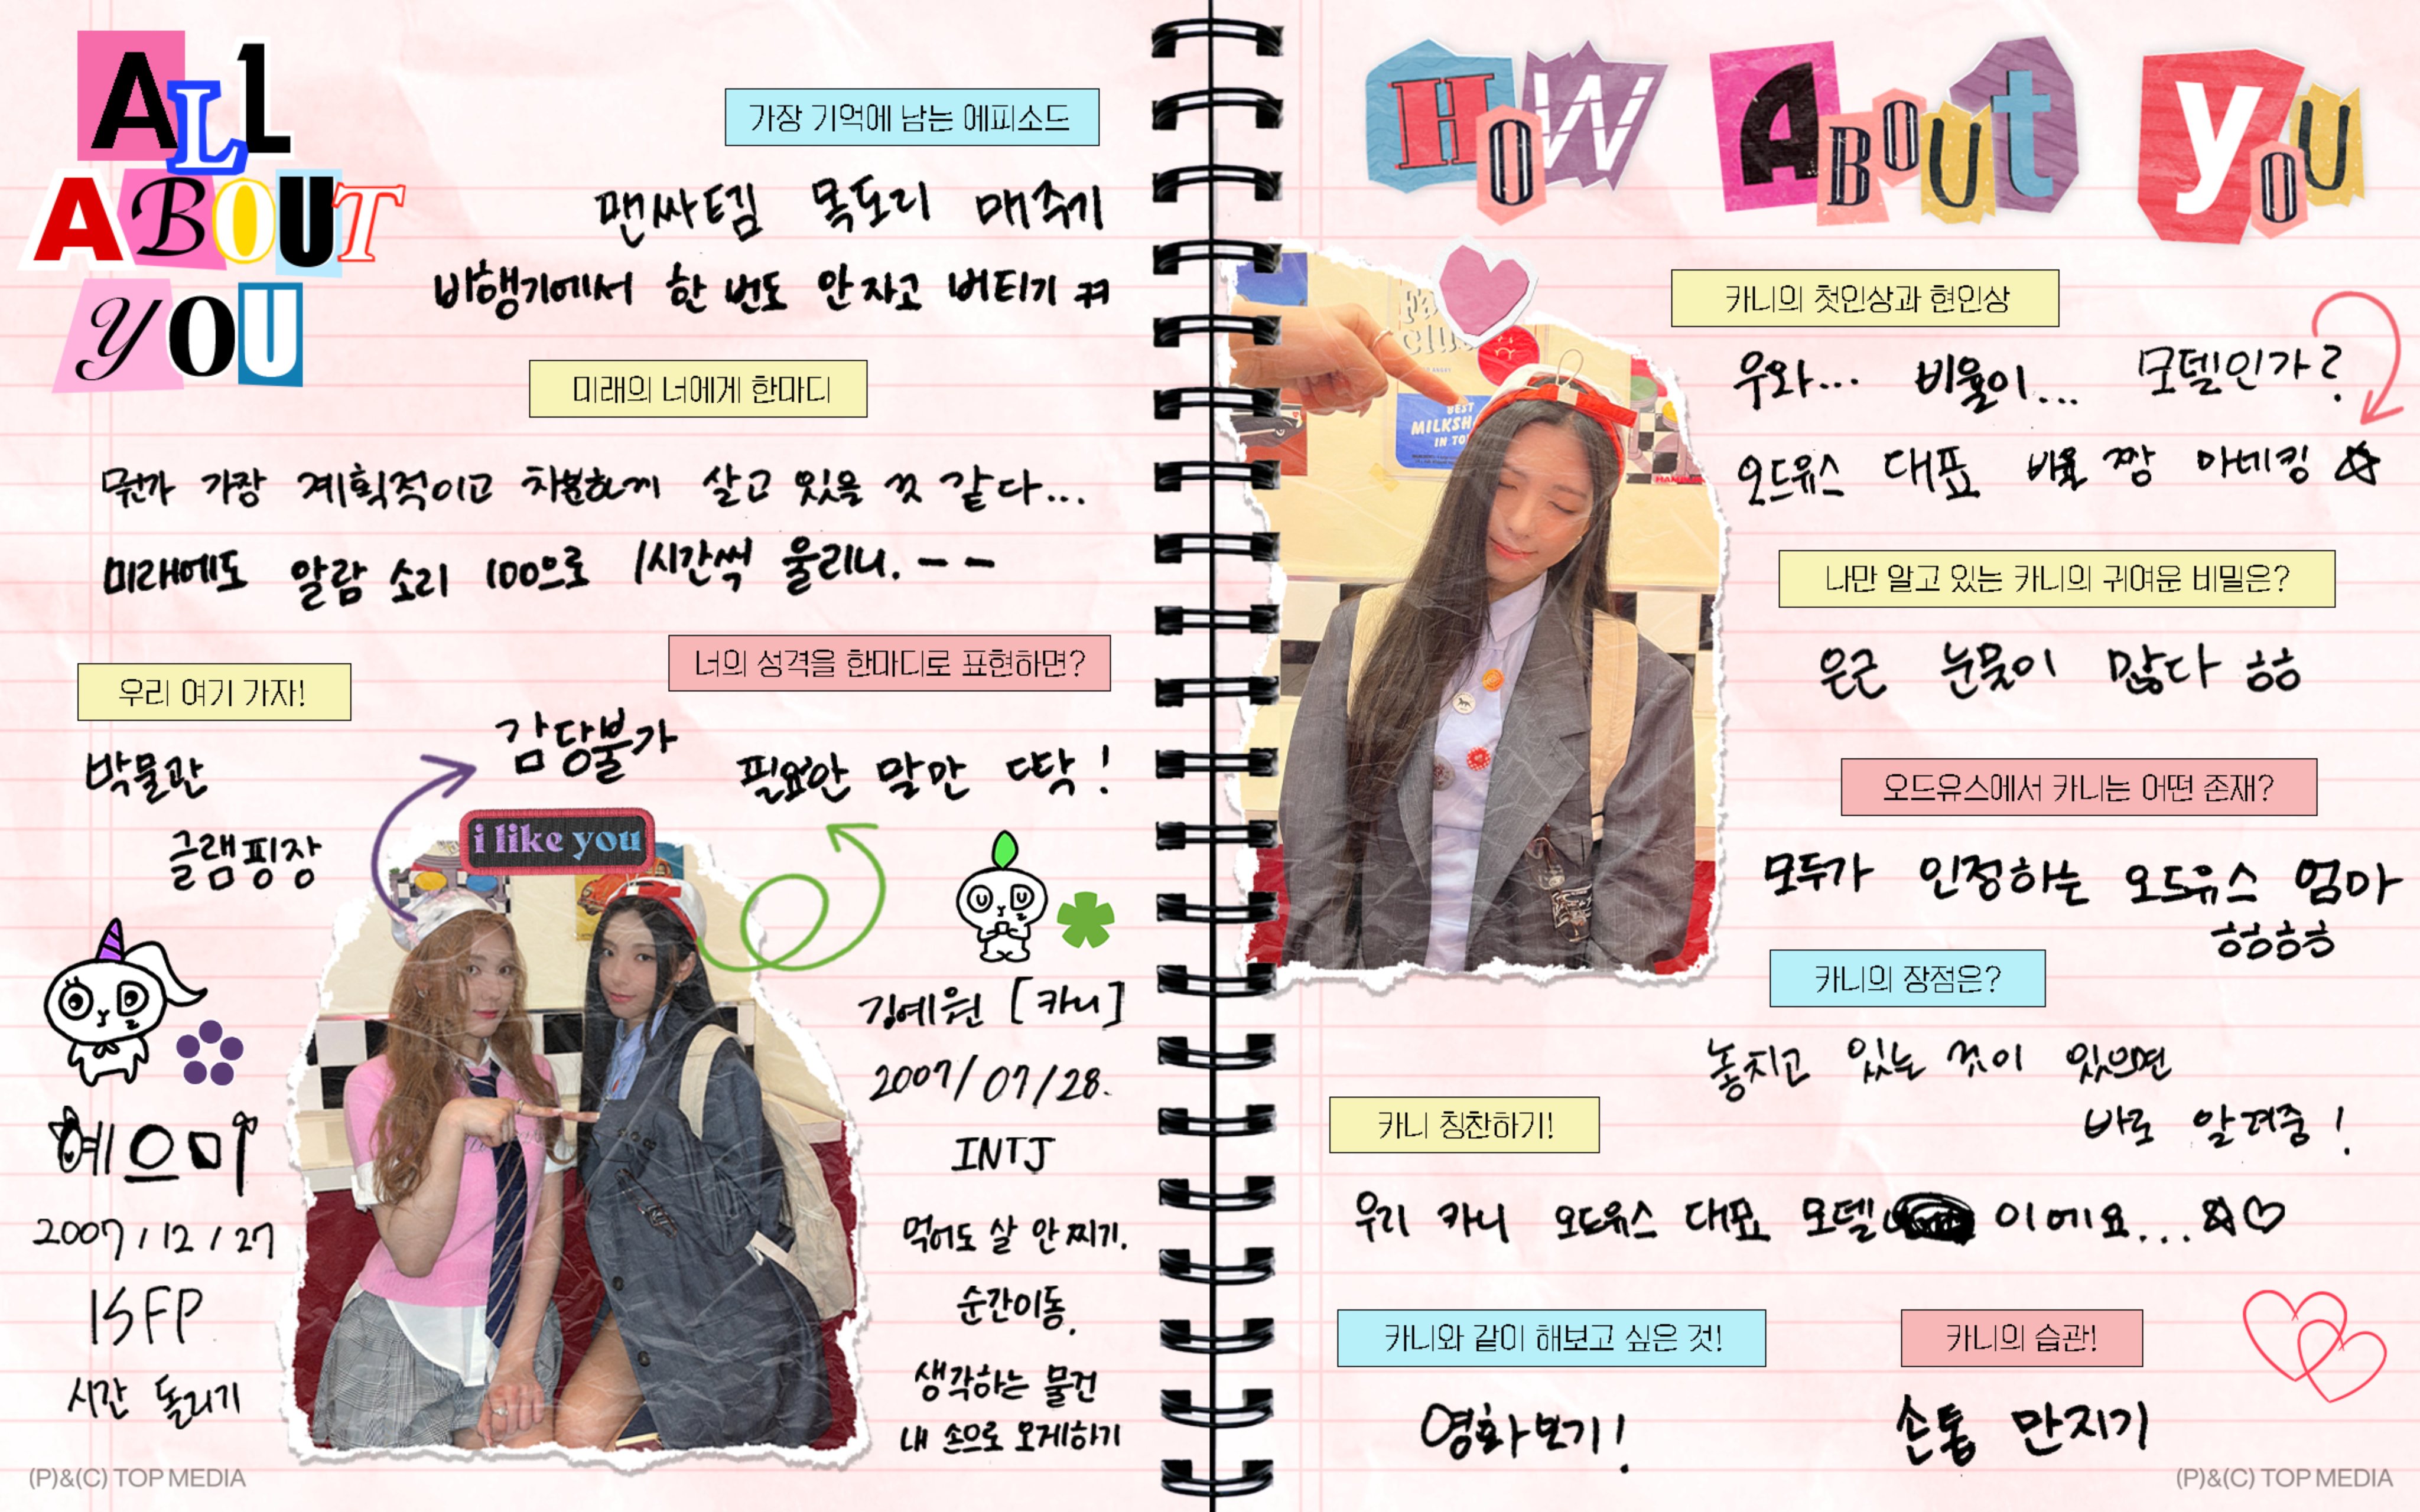 ALL
ABOUT
YOU
가장 기억에 남는 에피소드
맨싸텀 목도리 매주기
비행기에서 한 번도 안 자고 버티기 ㅋㅋ
미래의 너에게 한마디
뭔가 가장 계획적이고 차분하게 살고 있을 것 같다...
미래에도 알람 소리 100으로 1시간씩 울리니. --
너의 성격을 한마디로 표현하면?
감당불가
필요한 말만 딱!
우리 여기 가자!
박물관
글램핑장
i like you
예으미
2007/12/27
ISFP
시간 돌리기
김예원 [카니]
2007/07/28.
INTJ
먹어도 살 안 찌기.
순간이동.
생각하는 물건
내 손으로 오게하기
(P)&(C) TOP MEDIA
HOW ABOUT YOU
BEST
MILKSH
IN TO
카니의 첫인상과 현인상
우와... 비율이... 모델인가?
오드유스 대표 비율 짱 아네킹 ☆
나만 알고 있는 카니의 귀여운 비밀은?
은근 눈물이 많다 ㅎㅎ
오드유스에서 카니는 어떤 존재?
모두가 인정하는 오드유스 엄마
ㅎㅎㅎㅎ
카니의 장점은?
놓치고 있는 것이 있으면
바로 알려줌!
카니 칭찬하기!
우리 카니 오드유스 대표 모델 이에요...☆♡
카니와 같이 해보고 싶은 것!
영화보기!
카니의 습관!
손톱 만지기
(P)&(C) TOP MEDIA